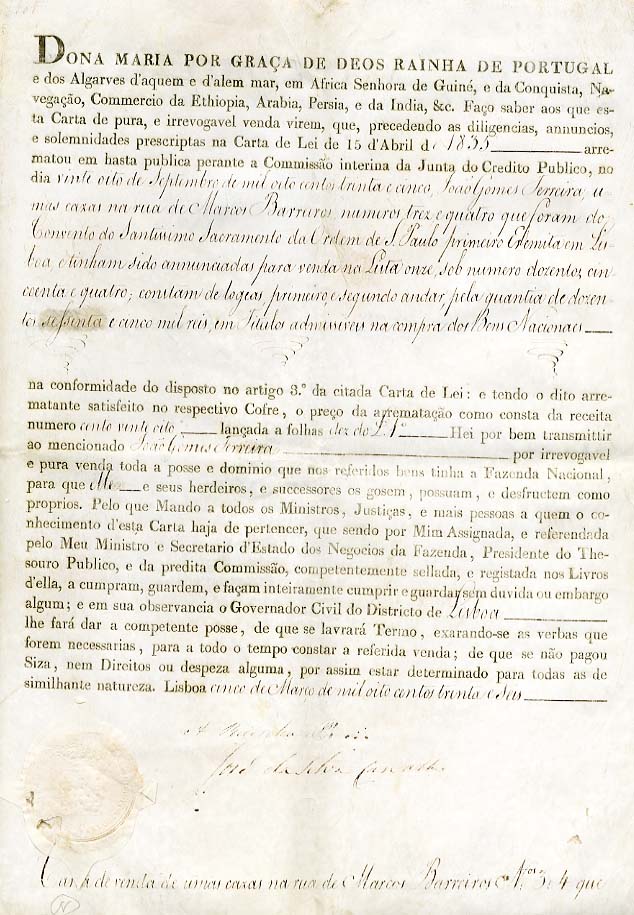 DONA MARIA POR GRAÇA DE DEOS RAINHA DE PORTUGAL
e dos Algarves d'aquem e d'alem mar, em Africa Senhora de Guiné, e da Conquista, Na-
vegação, Commercio da Ethiopia, Arabia, Persia, e da India, &c. Faço saber aos que es-
ta Carta de pura, e irrevogavel venda virem, que, precedendo as diligencias, annuncios,
e solemnidades prescriptas na Carta de Lei de 15 d'Abril de 1835 arre-
matou em hasta publica perante a Commissão interina da Junta do Credito Publico, no
dia vinte oito de Septembro de mil oito centos trinta e cinco, João Gomes Ferreira, u-
mas cazas na rua de Marcos Barreiros, numeros trez e quatro que foram do
Convento do Santissimo Sacramento da Ordem de S. Paulo primeiro Eremita em Lis-
boa, e tinham sido annunciadas para venda na Lista onze, sob numero dozentos, cin-
coenta e quatro; constam de logeas, primeiro, e segundo andar, pela quantia de dozen-
tos sessenta e cinco mil reis, em Titulos admissiveis na compra dos Bens Nacionaes
na conformidade do disposto no artigo 3.º da citada Carta de Lei: e tendo o dito arre-
matante satisfeito no respectivo Cofre, o preço da arrematação como consta da receita
numero cento vinte oito lançada a folhas dez do L. 1º Hei por bem transmittir
ao mencionado João Gomes Ferreira por irrevogavel
e pura venda toda a posse e dominio que nos referidos bens tinha a Fazenda Nacional,
para que e seus herdeiros, e successores os gosem, possuam, e desfructem como
proprios. Pelo que Mando a todos os Ministros, Justiças, e mais pessoas a quem o co-
nhecimento d'esta Carta haja de pertencer, que sendo por Mim Assignada, e referendada
pelo Meu Ministro e Secretario d'Estado dos Negocios da Fazenda, Presidente do The-
souro Publico, e da predita Commissão, competentemente sellada, e registada nos Livros
d'ella, a cumpram, guardem, e façam inteiramente cumprir e guardar sem duvida ou embargo
algum; e em sua observancia o Governador Civil do Districto de Lisboa
lhe fará dar a competente posse, de que se lavrará Termo, exarando-se as verbas que
forem necessarias, para a todo o tempo constar a referida venda; de que se não pagou
Siza, nem Direitos ou despeza alguma, por assim estar determinado para todas as de
similhante natureza. Lisboa cinco de Março de mil oito centos trinta e seis
José da Silva Carvalho
Carta de venda de umas cazas na rua de Marcos Barreiros Nros 3 e 4 que